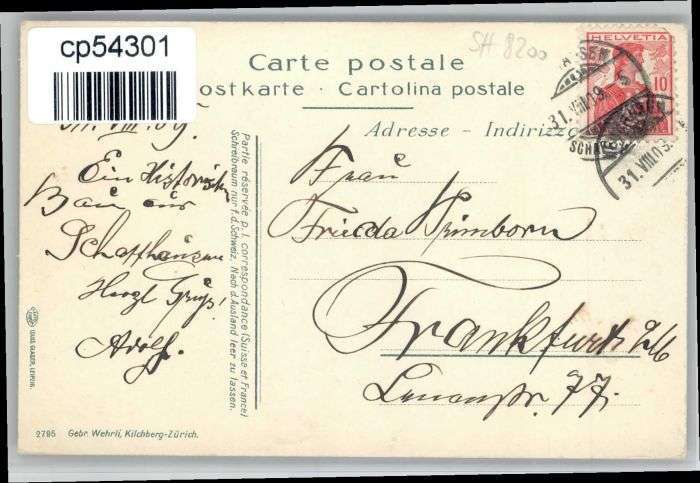 cp54301
SH 8200
Carte postale
ostkarte · Cartolina postale
HELVETIA
10
31.VIII.09.
31.VIII.09.
Adresse - Indirizzo
VIII.09.
Ein Historisch
Bau aus
Schaffhausen
Herzl Gruß!
Adolf.
Partie réservée p. l. correspondance (Suisse et France)
Schreibraum nur f. d. Schweiz. Nach d. Ausland leer zu lassen.
Frau
Frieda
Frankfurt
77
CHR. GLASER, LEIPZIG.
2795 Gebr. Wehrli, Kilchberg-Zürich.